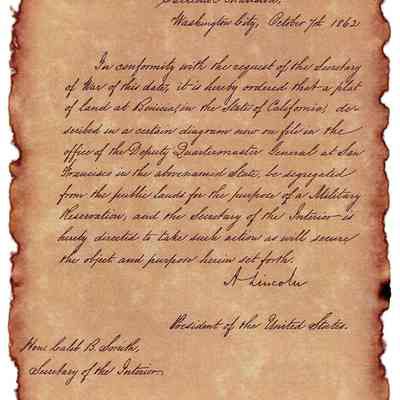 Executive Mansion,
Washington City, October 7th 1862
In conformity with the request of the Secretary
of War of this date, it is hereby ordered that a plat
of land at Benicia, in the State of California, de-
scribed in a certain diagram now on file in the
office of the Deputy Quartermaster General at San
Francisco in the abovenamed State, be segregated
from the public lands for the purpose of a Military
Reservation, and the Secretary of the Interior is
hereby directed to take such action as will secure
the object and purpose herein set forth.
A Lincoln
President of the United States.
Hon: Caleb B. Smith,
Secretary of the Interior.